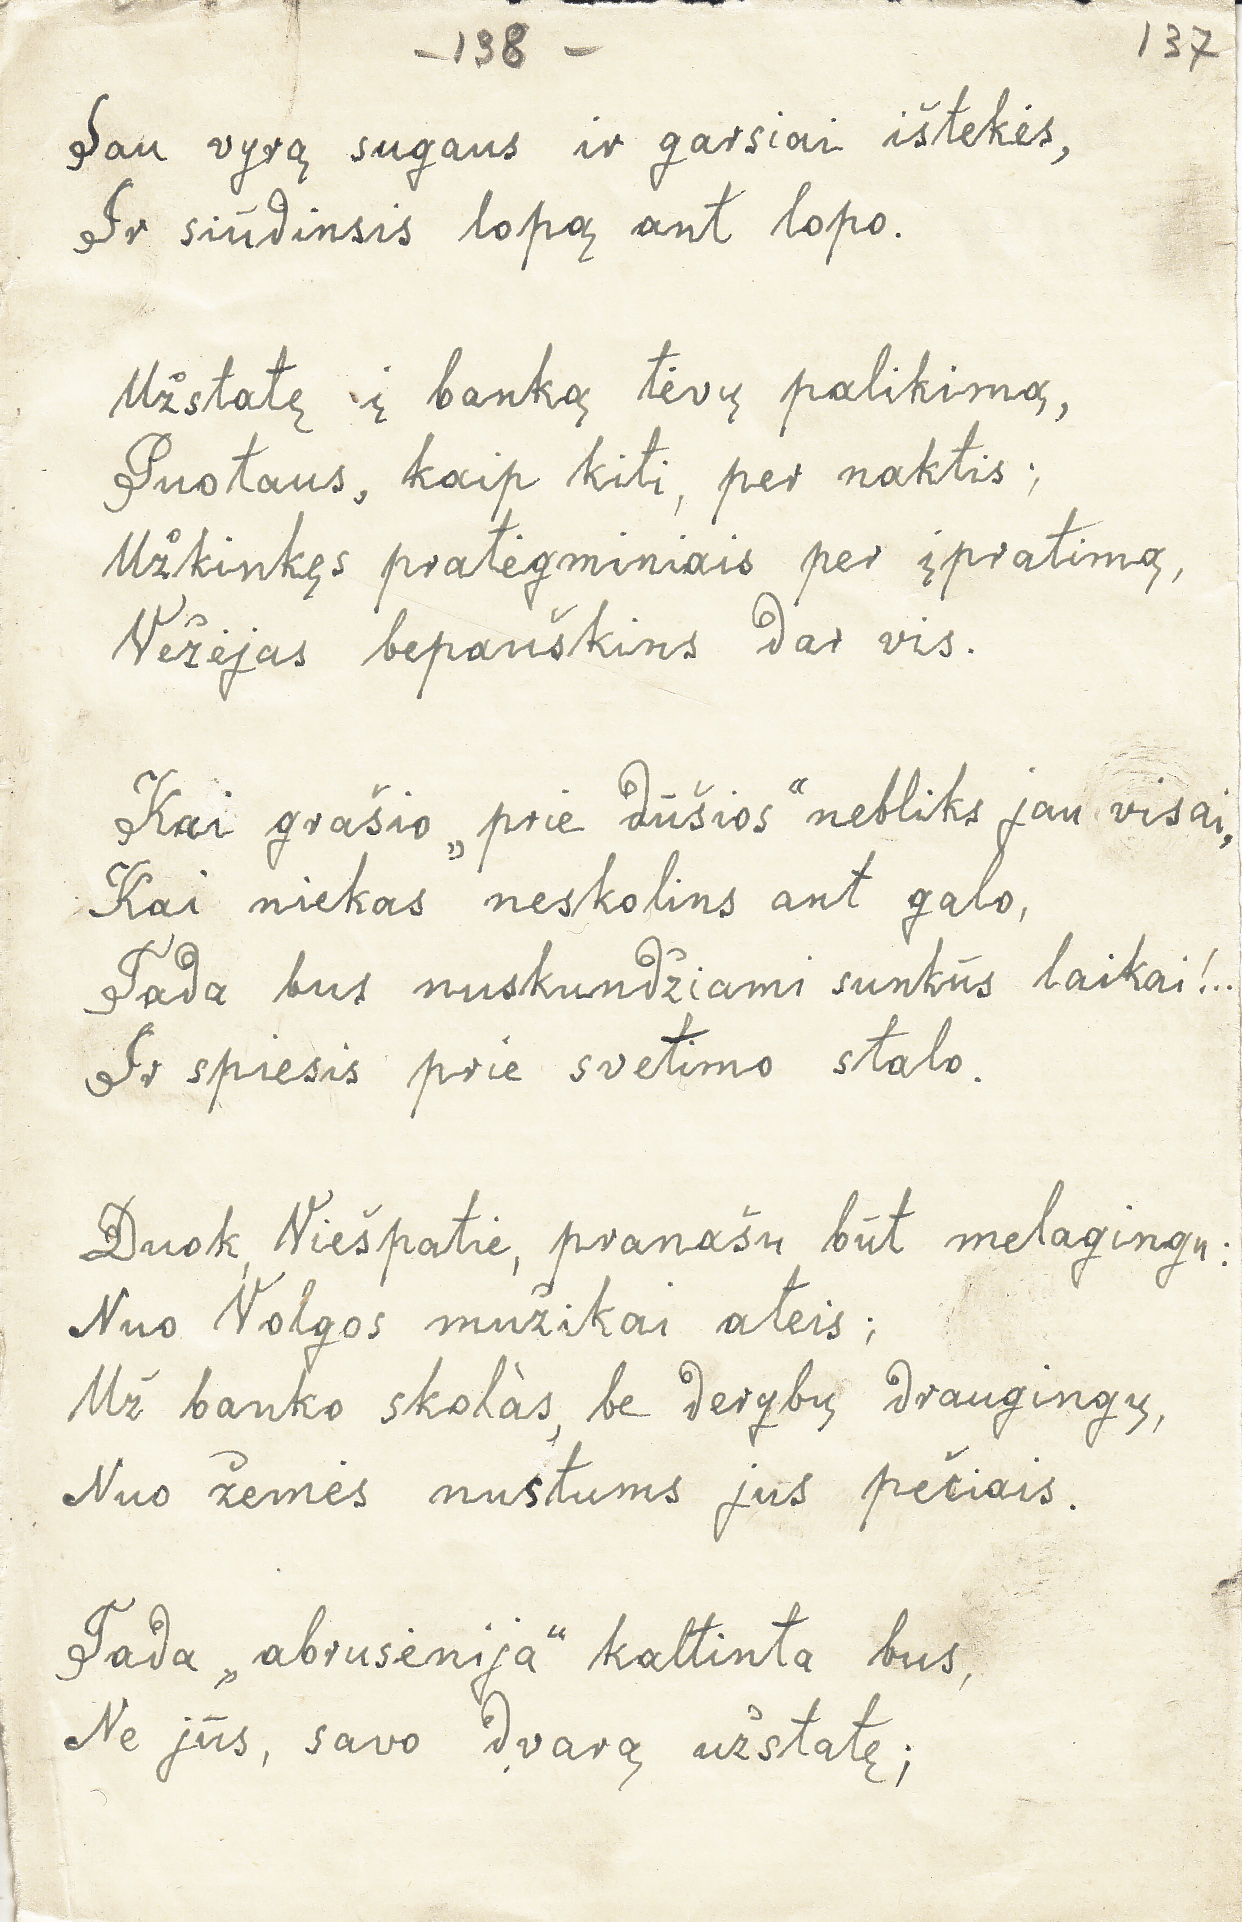 –138 –
137
Sau vyrą sugaus ir garsiai ištekės,
Ir siūdinsis lopą ant lopo.
Užstatę į banką tėvų palikimą,
Puotaus, kaip kiti, per naktis;
Užkinkęs pratėgminiais per įpratimą,
Vežėjas bepauškins dar vis.
Kai grašio „prie dūšios“ nebliks jau visai,
Kai niekas neskolins ant galo,
Tada bus nuskundžiami sunkūs laikai!..
Ir spiesis prie svetimo stalo.
Duok, Viešpatie, pranašu būt melagingu:
Nuo Volgos mužikai ateis;
Už banko skolàs, be derybų draugingų,
Nuo žemės nustums jus pečiais.
Tada „abrusėnija“ kaltinta bus,
Ne jūs, savo dvarą užstatę;